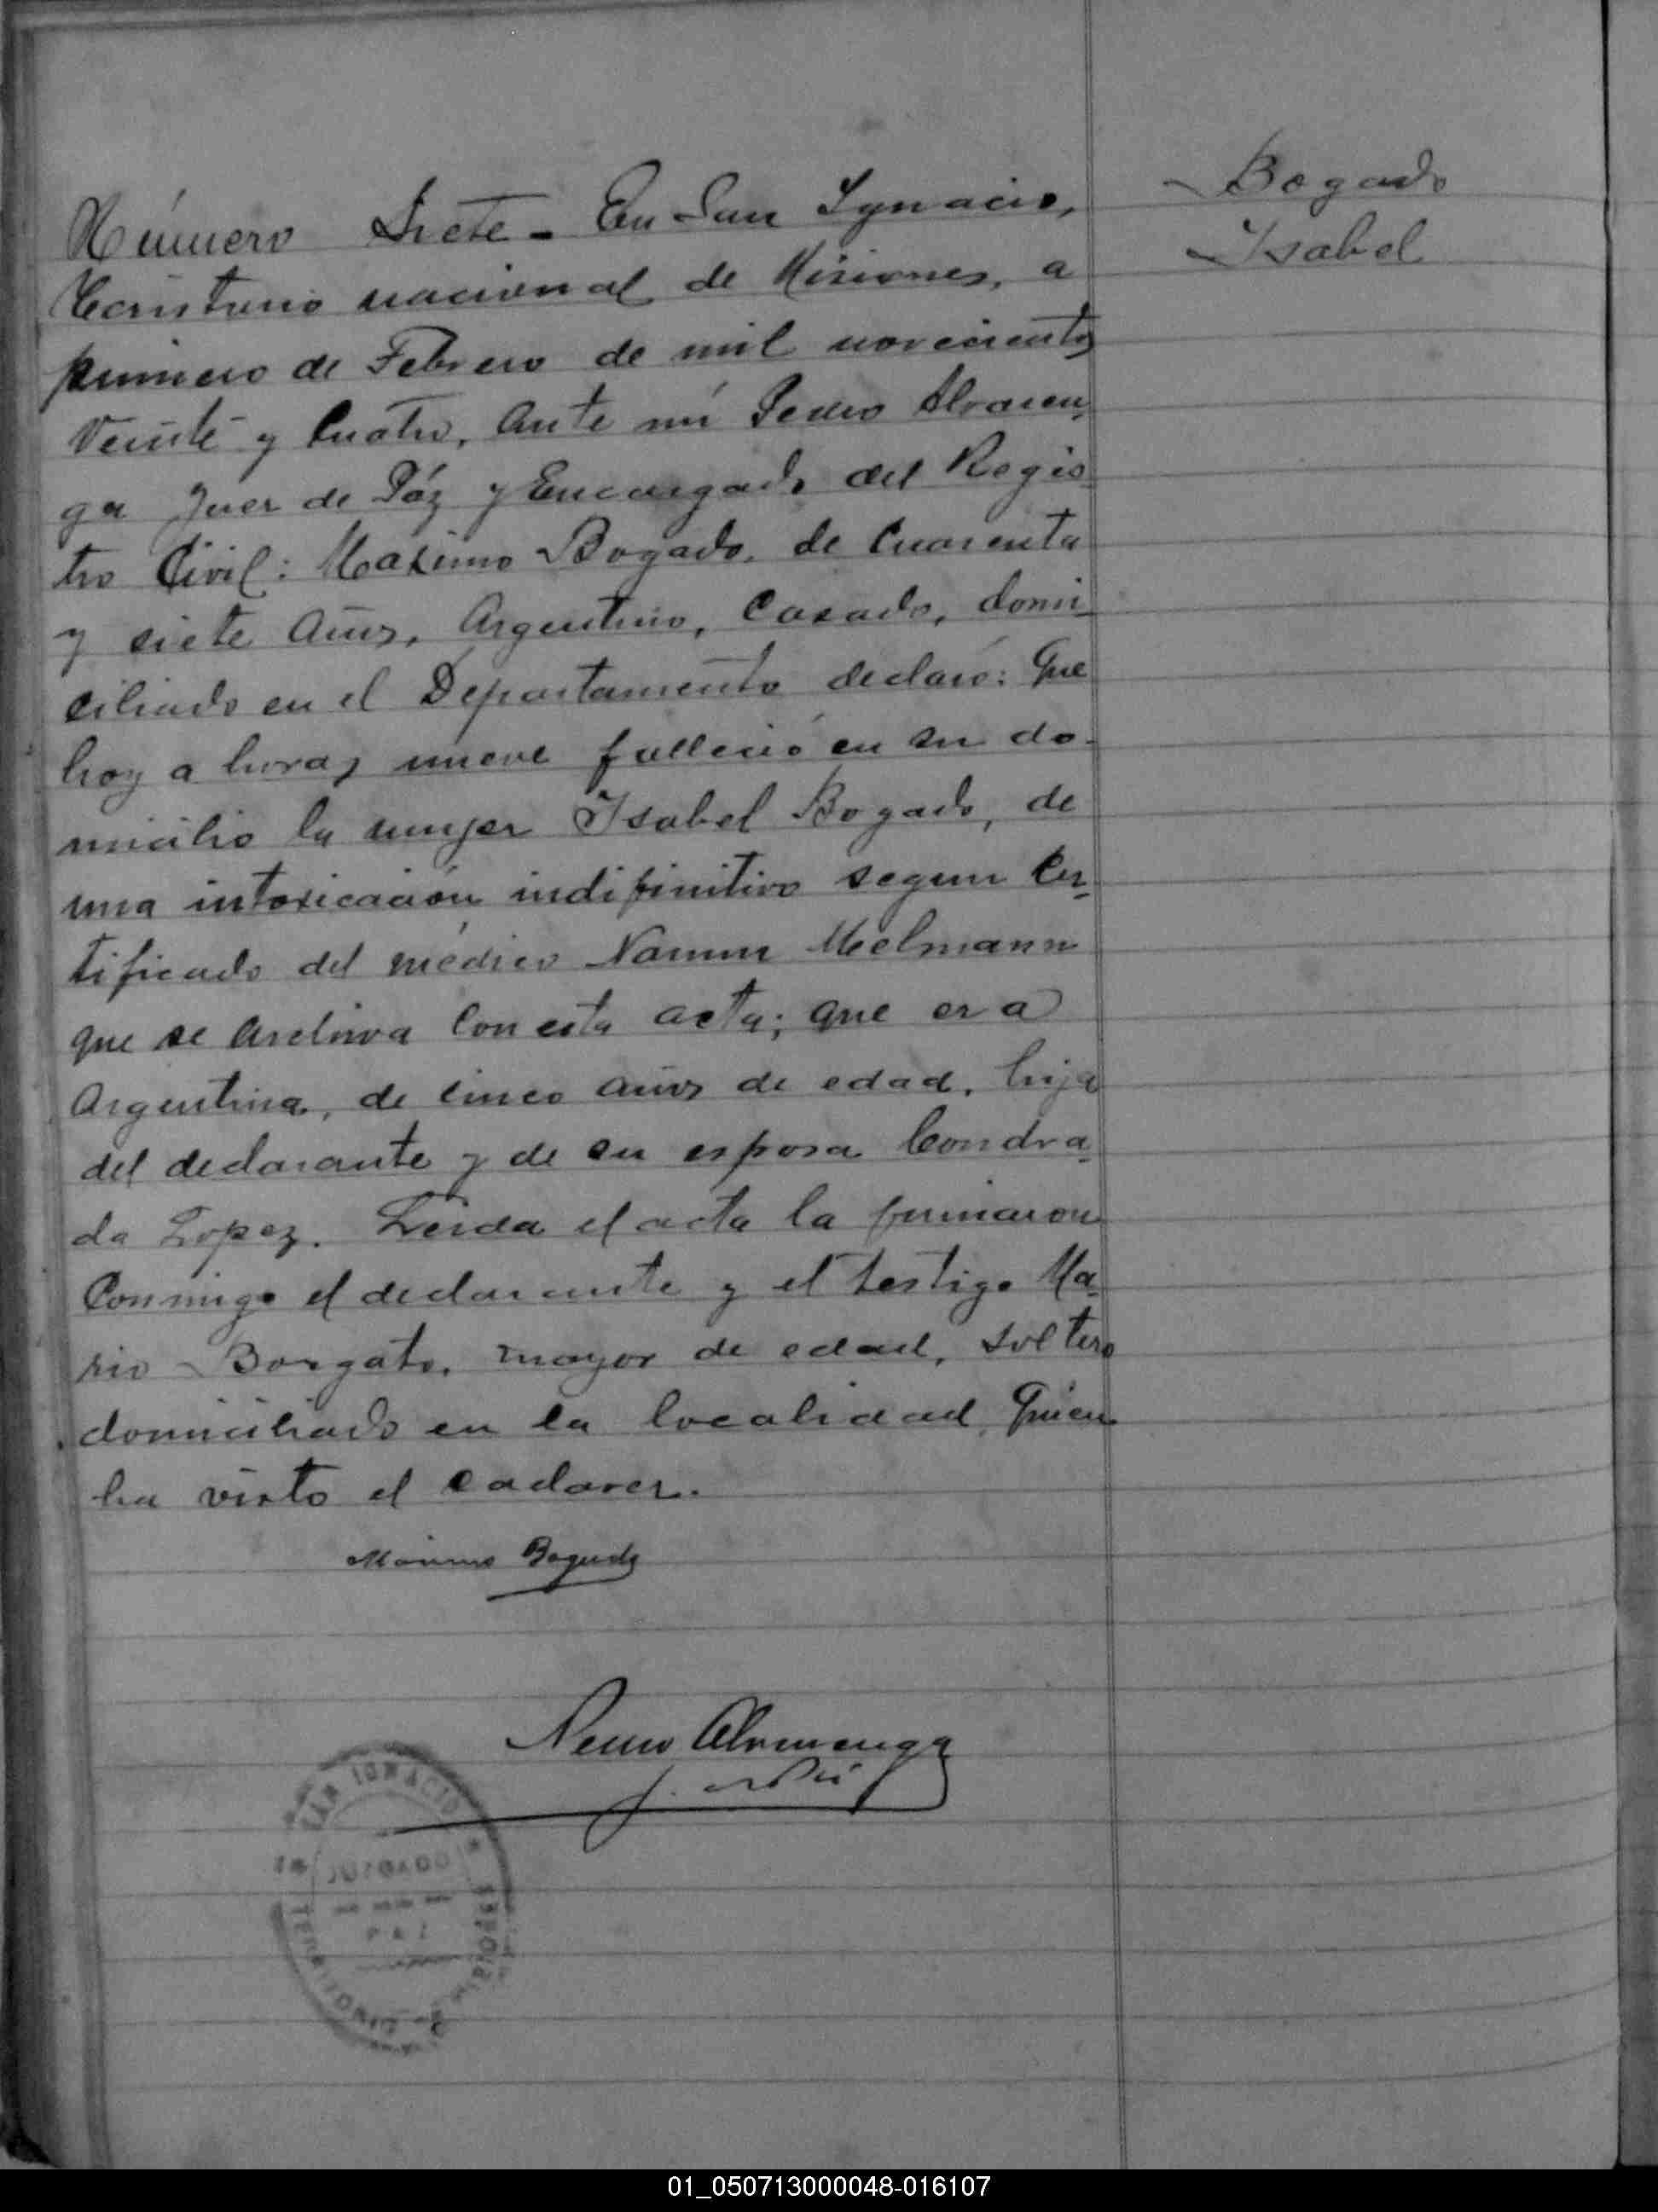 Bogado
Isabel
Número Siete - En San Ygnacio,
Territorio nacional de Misiones, a
primero de Febrero de mil novecientos
veinte y Cuatro, Ante mi Pedro Alvaren-
ga Juez de Páz y Encargado del Regis
tro Civil: Maximo Bogado, de Cuarenta
y siete Años, Argentino, Casado, domi-
ciliado en el Departamento declaró: Que
hoy a horas nueve falleció en su do-
micilio la mujer Isabel Bogado, de
una intoxicación indifinitiva segun Cer-
tificado del médico Naum Mielmann
que se Archiva Con esta acta; que era
Argentina, de cinco años de edad, hija
del declarante y de su esposa Condra-
da Lopez. Leida el acta la firmaron
Conmigo el declarante y el testigo Ma-
rio Borgato, mayor de edad, soltero
domiciliado en la localidad, Quien
ha visto el cadaver.
Máximo Bogado
Alvarenga
SAN IGNACIO
JUZGADO
PAZ
TERRITORIO DE MISIONES
01_050713000048-016107